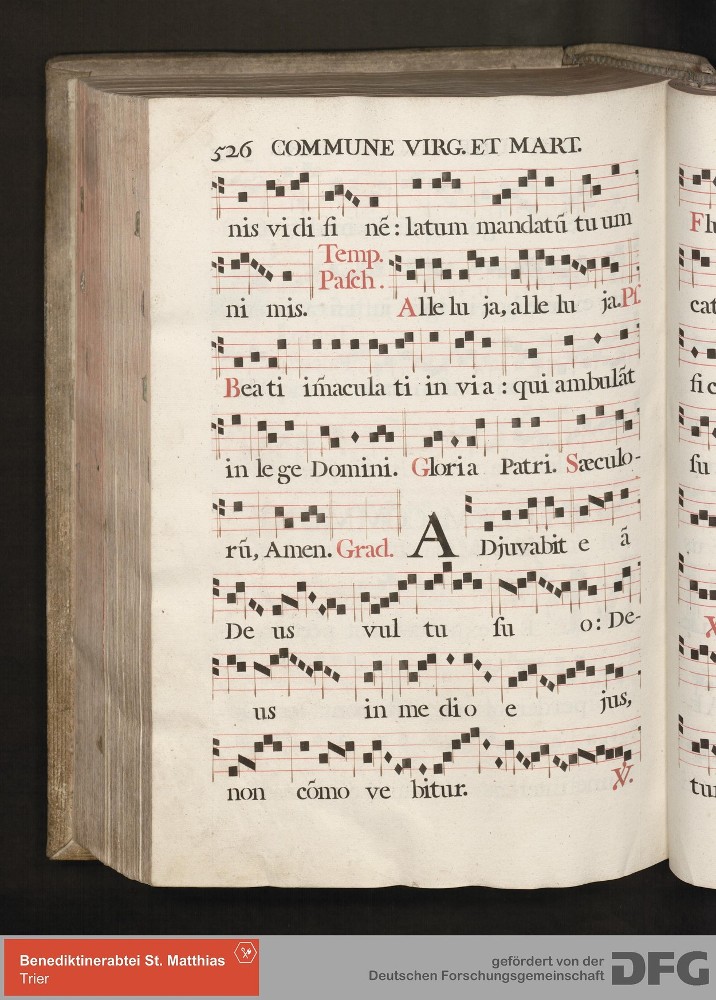 526 COMMUNE VIRG. ET MART.
nis vi di fi nē: latum mandatū tu um
ni mis. Temp. Pasch. Alle lu ja, alle lu ja. Ps.
Bea ti im̃acula ti in vi a : qui ambulãt
in le ge Domini. Gloria Patri. Sæculo-
rū, Amen. Grad. ADjuvabit e ā
De us vul tu su o: De-
us in me dio e jus,
non cōmo ve bitur. ℣.
Fl
cat
fi c
fu
℣
tu
Benediktinerabtei St. Matthias
Trier
gefördert von der
Deutschen Forschungsgemeinschaft
DFG